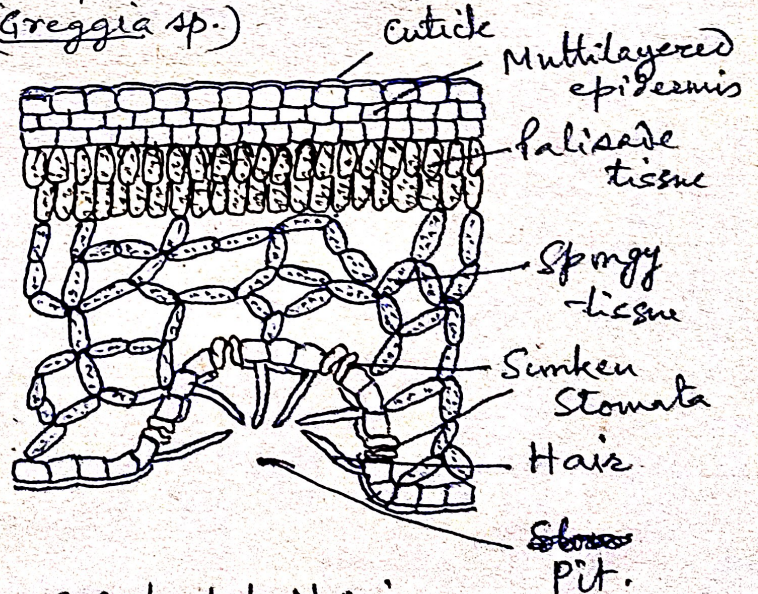 (Greggia sp.)
Cuticle
Multilayered
epidermis
Palisade
tissue
Spongy
tissue
Sunken
Stomata
Hair
Pit.